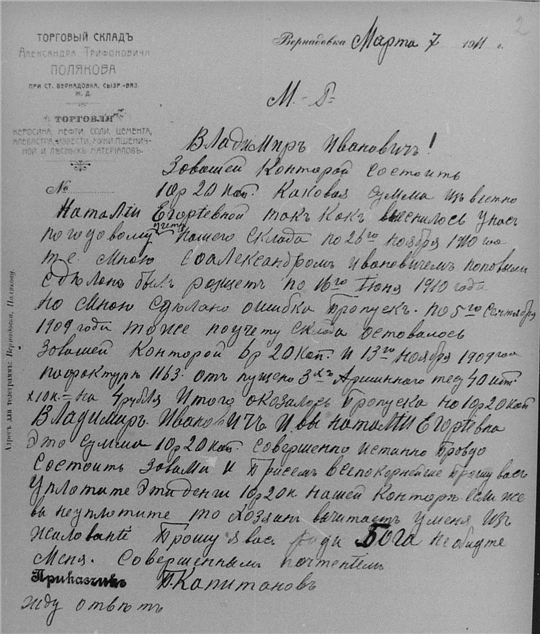 2
ТОРГОВЫЙ СКЛАДЪ
Александра Трифоновича
ПОЛЯКОВА
ПРИ СТ. ВЕРНАДОВКА, СЫЗР.-ВЯЗ.
Ж. Д.
ТОРГОВЛЯ
КЕРОСИНА, НЕФТИ, СОЛИ, ЦЕМЕНТА,
АЛЕБАСТРА, ИЗВЕСТИ, МУКИ ПШЕНИЧ-
НОЙ И ЛѢСНЫХЪ МАТЕРІАЛОВЪ.
Вернадовка Марта 7 1911 г.
М. - Г-
Владимиръ Ивановичъ!
Завашей Конторой Состоитъ
№ 10р 20 Коп. Каковая сумма извѣстно
Наталіи Егорьевной такъ какъ выеснилось унасъ
погодовому учету Нашего Склада по 26го ноября 1910 года
т.е. мною соАлександромъ Ивановичемъ поповымъ
Сдѣланъ былъ расщетъ по 16го Іюня 1910 года
но мною сдѣлано ошибка Пропускъ. по 5го Сентября
1909 года тоже поучету Склада оставалось
Завашей Конторой 6р 20 Коп. и 13го Ноября 1909 года
пофактуры 1163. отпущено 3хъ Аршинного тесу 40 шт.
х10к = на 4рубля Итого оказалось пропуска на 10р 20 Коп
Владимиръ Ивановичъ И вы наталіи Егорьевна
Эта сумма 10р 20 Коп. совершенно истинно
Состоитъ Завами и всепокорнейше Прошу васъ
Уплатите Эти денги 10р 20к нашей Конторѣ если же
вы неуплатите то хозяинъ вычитаетъ уменя изъ
жалованіе Прошу я васъ ради Бога не обидте
Меня. Совершенымъ почтенiемъ
Приказчикъ П. Капитановъ
жду отвѣтъ
Адресъ для телеграммъ: Вернадовка, Полякову.